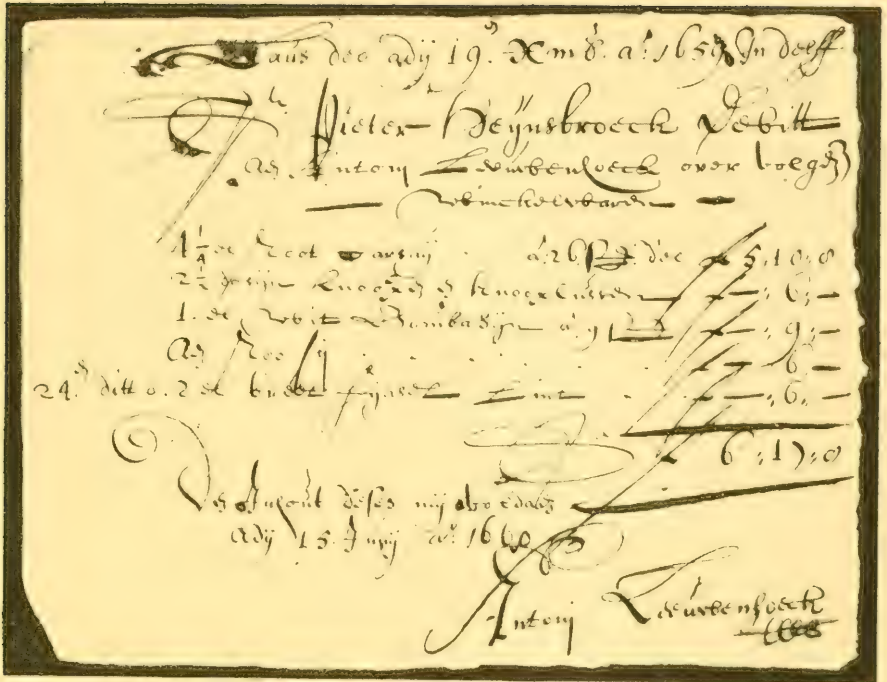 Laus deo adij 19. Xmb. a. 1659 In delff
Pieter Heijnsbroeck Debitt
Aen Antonj Leeuwenhoeck over volgen
winckelwaren
4 1/4 el Root a 26 d'ee 5:10:8
2 1/2 dosijn knoopen 6:—
1. el wit Bombasijn a 9 9:—
Aen 6
24. ditto. 2 el breet Lint 6:—
6:17:8
Den Inhout deses mij voldaen
Adij 15. Junij a. 1660
Antonj Leeuwenhoeck